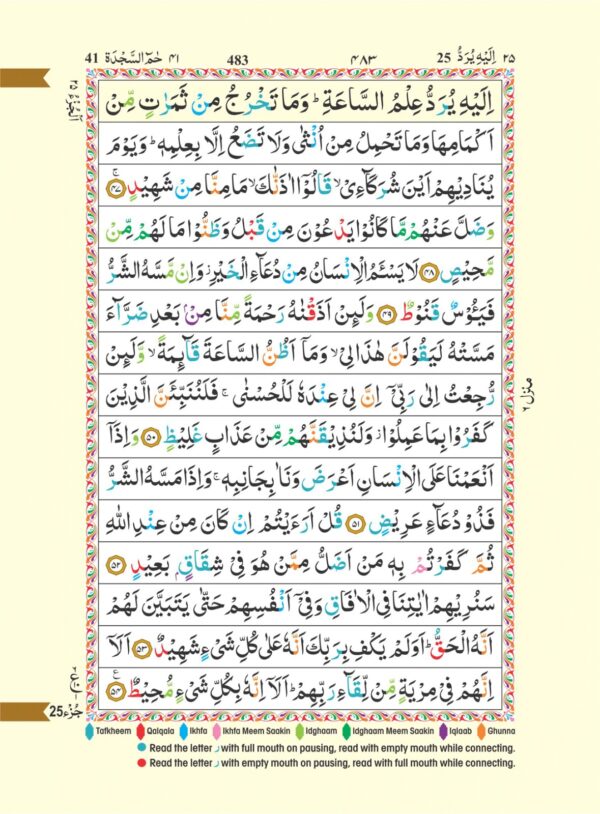 41 حٰمٓ السَّجْدَة ۴۱ 483 ۴۸۳ 25 اِلَيْهِ يُرَدُّ ۲۵
اِلَيْهِ يُرَدُّ عِلْمُ السَّاعَةِ ؕ وَمَا تَخْرُجُ مِنْ ثَمَرٰتٍ مِّنْ
اَكْمَامِهَا وَمَا تَحْمِلُ مِنْ اُنْثٰى وَلَا تَضَعُ اِلَّا بِعِلْمِهٖ ؕ وَيَوْمَ
يُنَادِيْهِمْ اَيْنَ شُرَكَآءِىْ ۙ قَالُوْٓا اٰذَنّٰكَ ۙ مَا مِنَّا مِنْ شَهِيْدٍ ۚ ۴۷
وَضَلَّ عَنْهُمْ مَّا كَانُوْا يَدْعُوْنَ مِنْ قَبْلُ وَظَنُّوْا مَا لَهُمْ مِّنْ
مَّحِيْصٍ ۴۸ لَا يَسْـَٔمُ الْاِنْسَانُ مِنْ دُعَآءِ الْخَيْرِ ۫ وَاِنْ مَّسَّهُ الشَّرُّ
فَيَـُٔوْسٌ قَنُوْطٌ ۴۹ وَلَئِنْ اَذَقْنٰهُ رَحْمَةً مِّنَّا مِنْۢ بَعْدِ ضَرَّآءَ
مَسَّتْهُ لَيَقُوْلَنَّ هٰذَا لِىْ ۙ وَمَآ اَظُنُّ السَّاعَةَ قَآئِمَةً ۙ وَّلَئِنْ
رُّجِعْتُ اِلٰى رَبِّىْٓ اِنَّ لِىْ عِنْدَهٗ لَلْحُسْنٰى ۚ فَلَنُنَبِّئَنَّ الَّذِيْنَ
كَفَرُوْا بِمَا عَمِلُوْا ۫ وَلَنُذِيْقَنَّهُمْ مِّنْ عَذَابٍ غَلِيْظٍ ۵۰ وَاِذَآ
اَنْعَمْنَا عَلَى الْاِنْسَانِ اَعْرَضَ وَنَاٰ بِجَانِبِهٖ ۚ وَاِذَا مَسَّهُ الشَّرُّ
فَذُوْ دُعَآءٍ عَرِيْضٍ ۵۱ قُلْ اَرَءَيْتُمْ اِنْ كَانَ مِنْ عِنْدِ اللّٰهِ
ثُمَّ كَفَرْتُمْ بِهٖ مَنْ اَضَلُّ مِمَّنْ هُوَ فِىْ شِقَاقٍۭ بَعِيْدٍ ۵۲
سَنُرِيْهِمْ اٰيٰتِنَا فِى الْاٰفَاقِ وَفِىْٓ اَنْفُسِهِمْ حَتّٰى يَتَبَيَّنَ لَهُمْ
اَنَّهُ الْحَقُّ ؕ اَوَلَمْ يَكْفِ بِرَبِّكَ اَنَّهٗ عَلٰى كُلِّ شَىْءٍ شَهِيْدٌ ۵۳ اَلَآ
اِنَّهُمْ فِىْ مِرْيَةٍ مِّنْ لِّقَآءِ رَبِّهِمْ ؕ اَلَآ اِنَّهٗ بِكُلِّ شَىْءٍ مُّحِيْطٌ ۵۴
منزل ۶
25 جُزْء
Tafkheem Qalqala Ikhfa Ikhfa Meem Saakin Idghaam Idghaam Meem Saakin Iqlaab Ghunna
Read the letter ر with full mouth on pausing, read with empty mouth while connecting.
Read the letter ر with empty mouth on pausing, read with full mouth while connecting.